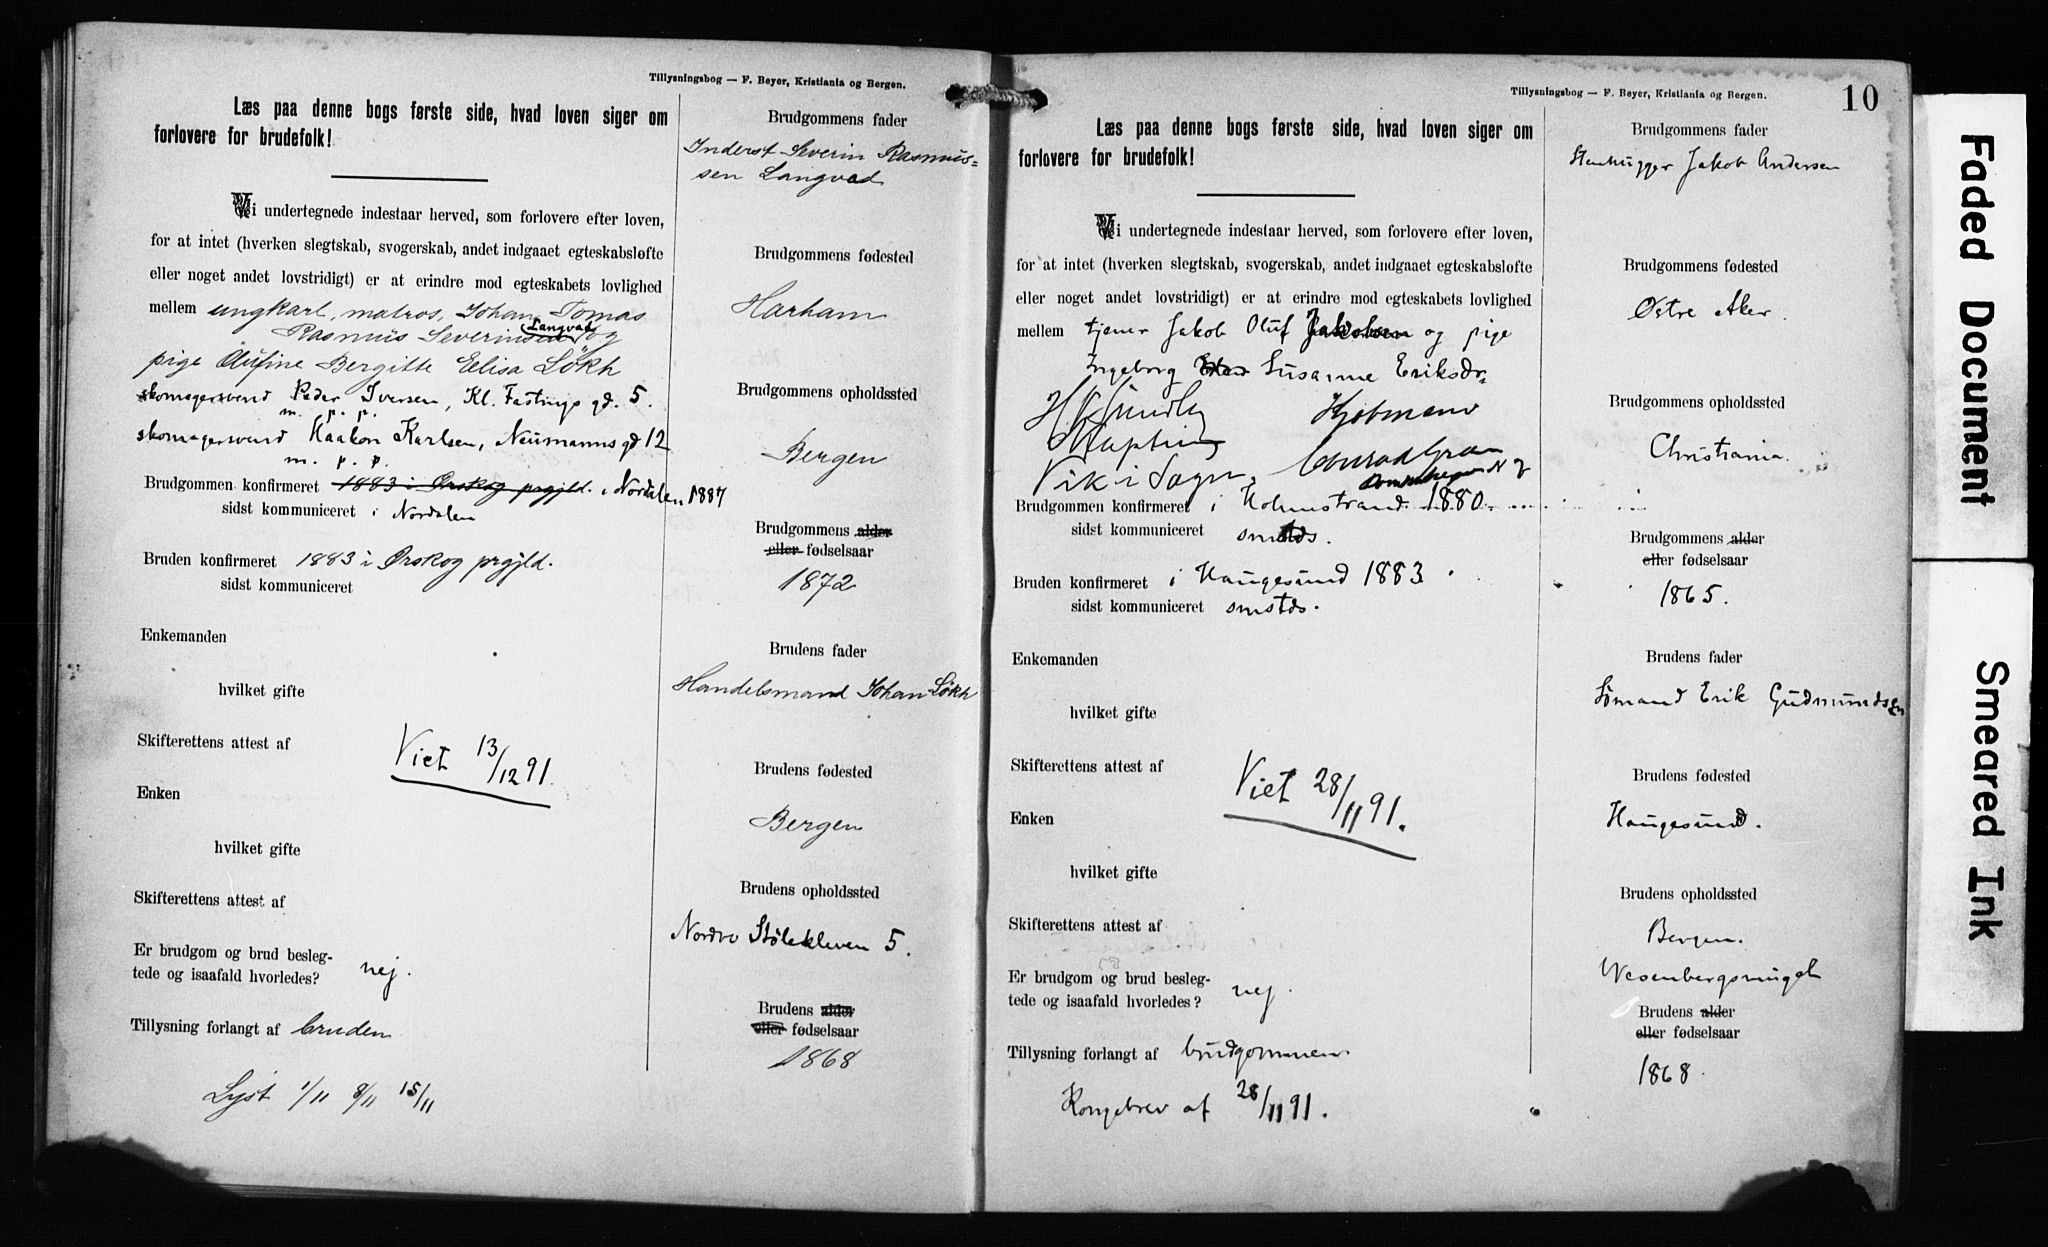 Tillysningsbog — F. Beyer, Kristiania og Bergen.
Læs paa denne bogs første side, hvad loven siger om
forlovere for brudefolk!
Vi undertegnede indestaar herved, som forlovere efter loven,
for at intet (hverken slegtskab, svogerskab, andet indgaaet egteskabsløfte
eller noget andet lovstridigt) er at erindre mod egteskabets lovlighed
mellem ungkarl, matros, Johan Tomas
Rasmus Severinsen Langvad og
pige Olufine Bergitte Elisa Løkh
skomagersvend Peder Iversen, Kl. Fastings gd. 5.
m. p. p.
skomagersvend Haakon Karlsen, Neumanns gd 12
m. p. p.
Brudgommen konfirmeret 1883 i Ørskog prgjld. i Nordalen 1887
sidst kommuniceret i Nordalen
Bruden konfirmeret 1883 i Ørskog prgjld.
sidst kommuniceret
Enkemanden
hvilket gifte
Skifterettens attest af
Viet 13/12 91.
Enken
hvilket gifte
Skifterettens attest af
Er brudgom og brud besleg-
tede og isaafald hvorledes? nej.
Tillysning forlangt af bruden
Lyst 1/11 8/11 15/11
Brudgommens fader
Inderst Severin Rasmus-
sen Langvad
Brudgommens fødested
Harham
Brudgommens opholdssted
Bergen
Brudgommens alder
eller fødselsaar
1872
Brudens fader
Handelsmand Johan Løkh
Brudens fødested
Bergen
Brudens opholdssted
Nordre Stølekleven 5.
Brudens alder
eller fødselsaar
1868
Tillysningsbog — F. Beyer, Kristiania og Bergen.
10
Læs paa denne bogs første side, hvad loven siger om
forlovere for brudefolk!
Vi undertegnede indestaar herved, som forlovere efter loven,
for at intet (hverken slegtskab, svogerskab, andet indgaaet egteskabsløfte
eller noget andet lovstridigt) er at erindre mod egteskabets lovlighed
mellem tjener Jakob Oluf Jakobsen og pige
Ingeborg Susanne Eriksdr.
Kjøbmand
Vik i Sogn. Conrad Gran
Brudgommen konfirmeret i Holmestrand 1880.
sidst kommuniceret smstds.
Bruden konfirmeret i Haugesund 1883.
sidst kommuniceret smstds.
Enkemanden
hvilket gifte
Skifterettens attest af
Viet 28/11 91.
Enken
hvilket gifte
Skifterettens attest af
Er brudgom og brud besleg-
tede og isaafald hvorledes? nej.
Tillysning forlangt af brudgommen
Kongebrev af 28/11 91.
Brudgommens fader
Stenhugger Jakob Andersen
Brudgommens fødested
Østre Aker.
Brudgommens opholdssted
Christiania.
Brudgommens alder
eller fødselsaar
1865.
Brudens fader
Sømand Erik Gudmundsen
Brudens fødested
Haugesund.
Brudens opholdssted
Bergen.
Wesenbergsmuget
Brudens alder
eller fødselsaar
1868.
Faded Document
Smeared Ink